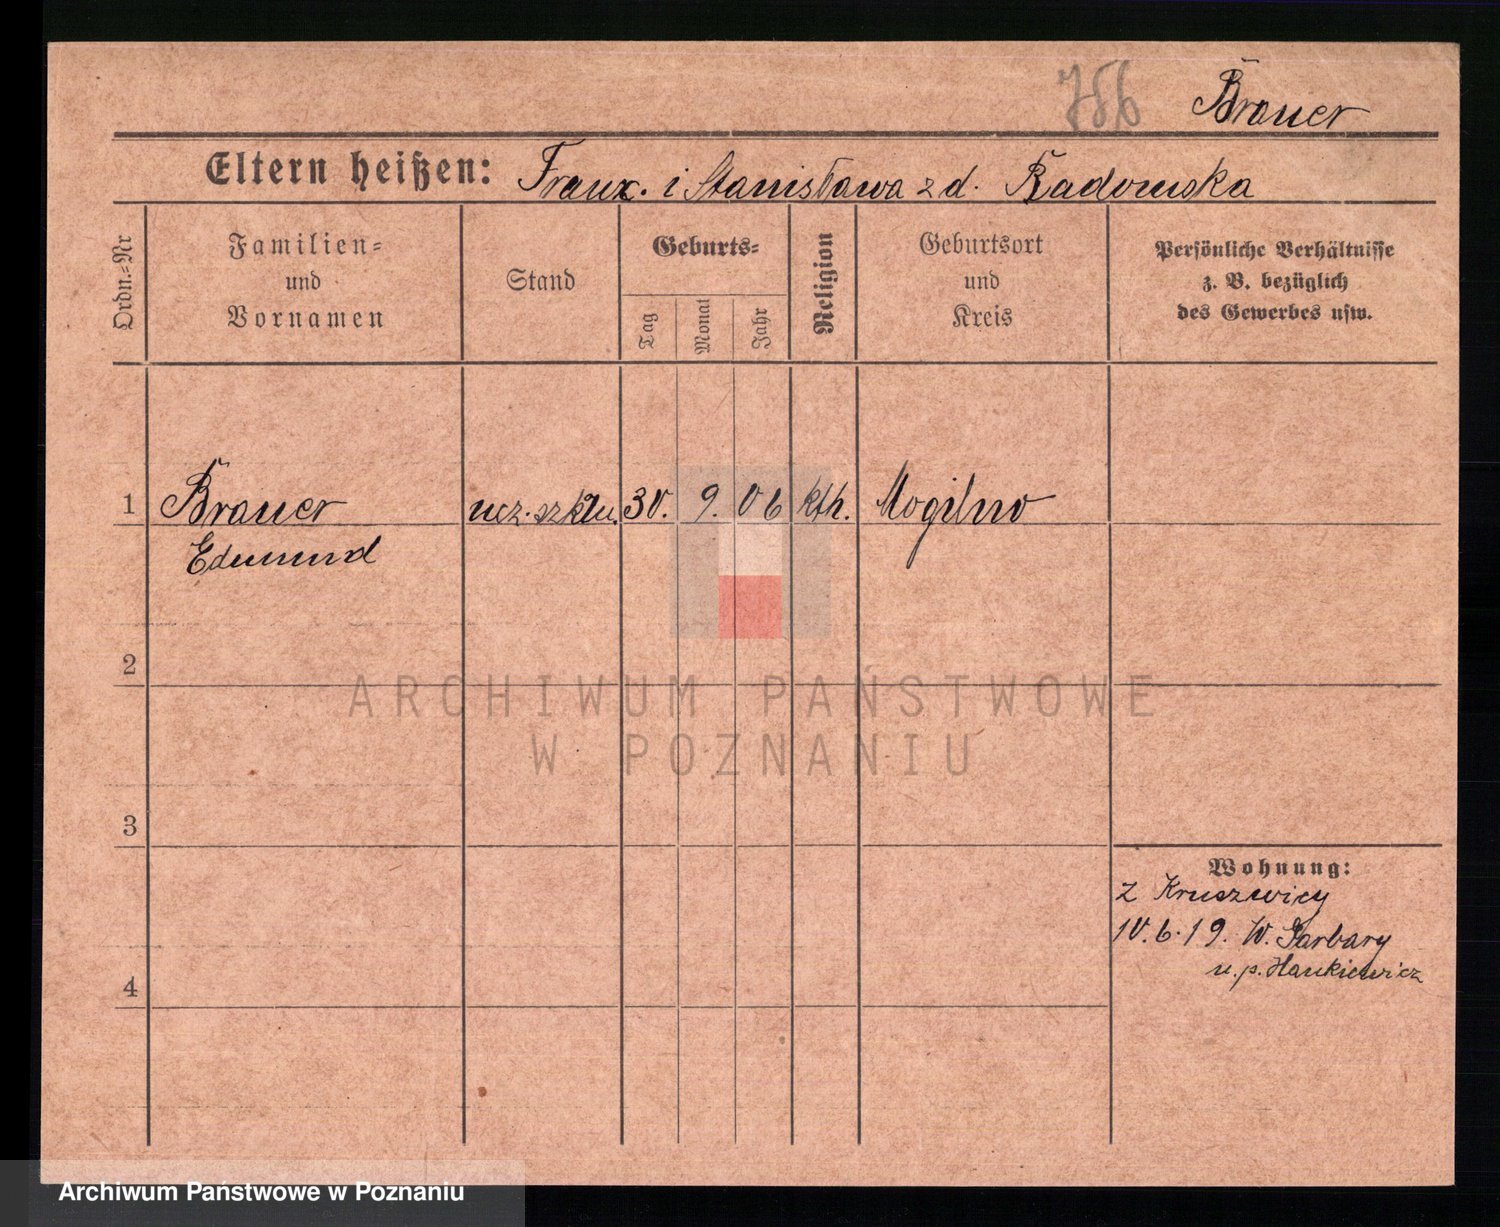 756 Brauer
Eltern heißen: Franz. i Stanisława z d. Radomska
Ordn.=Nr
Familien=
und
Vornamen
Stand
Geburts=
Tag
Monat
Jahr
Religion
Geburtsort
und
Kreis
Persönliche Verhältnisse
z. B. bezüglich
des Gewerbes usw.
1 Brauer ucz. 30. 9. 06 kth. Mogilno
Edmund
2
ARCHIWUM PAŃSTWOWE
W POZNANIU
3
Wohnung:
z Kruszwicy
10.6.19. W. Garbary
u. p. Hankiewicz
4
Archiwum Państwowe w Poznaniu